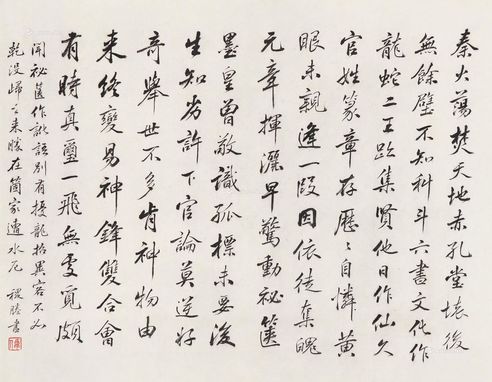 秦火蕩焚天地赤孔堂壞後
無餘壁不知科斗六書文化作
龍蛇二王跡集賢他日作仙久
官姓篆章存歷歷自憐黃
眼未親逢一段因依徒集魄
元章揮灑早驚動祕篋
墨皇曾敬識孤標未要後
生知劣許下官論莫逆好
奇舉世不多肯神物由
来終變易神鋒雙合會
有時真璽一飛無處覓頗
聞祕篋作訛語別有援龍招異客不如
乾没歸之来勝在箇家遭水厄 書